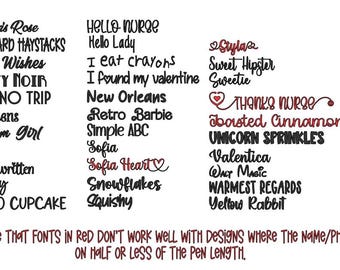 's Rose
ARD HAYSTACKS
Wishes
Y NOIR
NO TRIP
ons
m Girl
written
y
O CUPCAKE
HELLO NURSE
Hello Lady
I eat crayons
I found my valentine
New Orleans
Retro Barbie
Simple ABC
Sofia
Sofia Heart
Snowflakes
Squishy
Styla
Sweet Hipster
Sweetie
THANKS NURSE
Toasted Cinnamon
UNICORN SPRINKLES
Valentica
Walt Music
WARMEST REGARDS
Yellow Rabbit
E THAT FONTS IN RED DON'T WORK WELL WITH DESIGNS WHERE THE NAME/PH
ON HALF OR LESS OF THE PEN LENGTH.